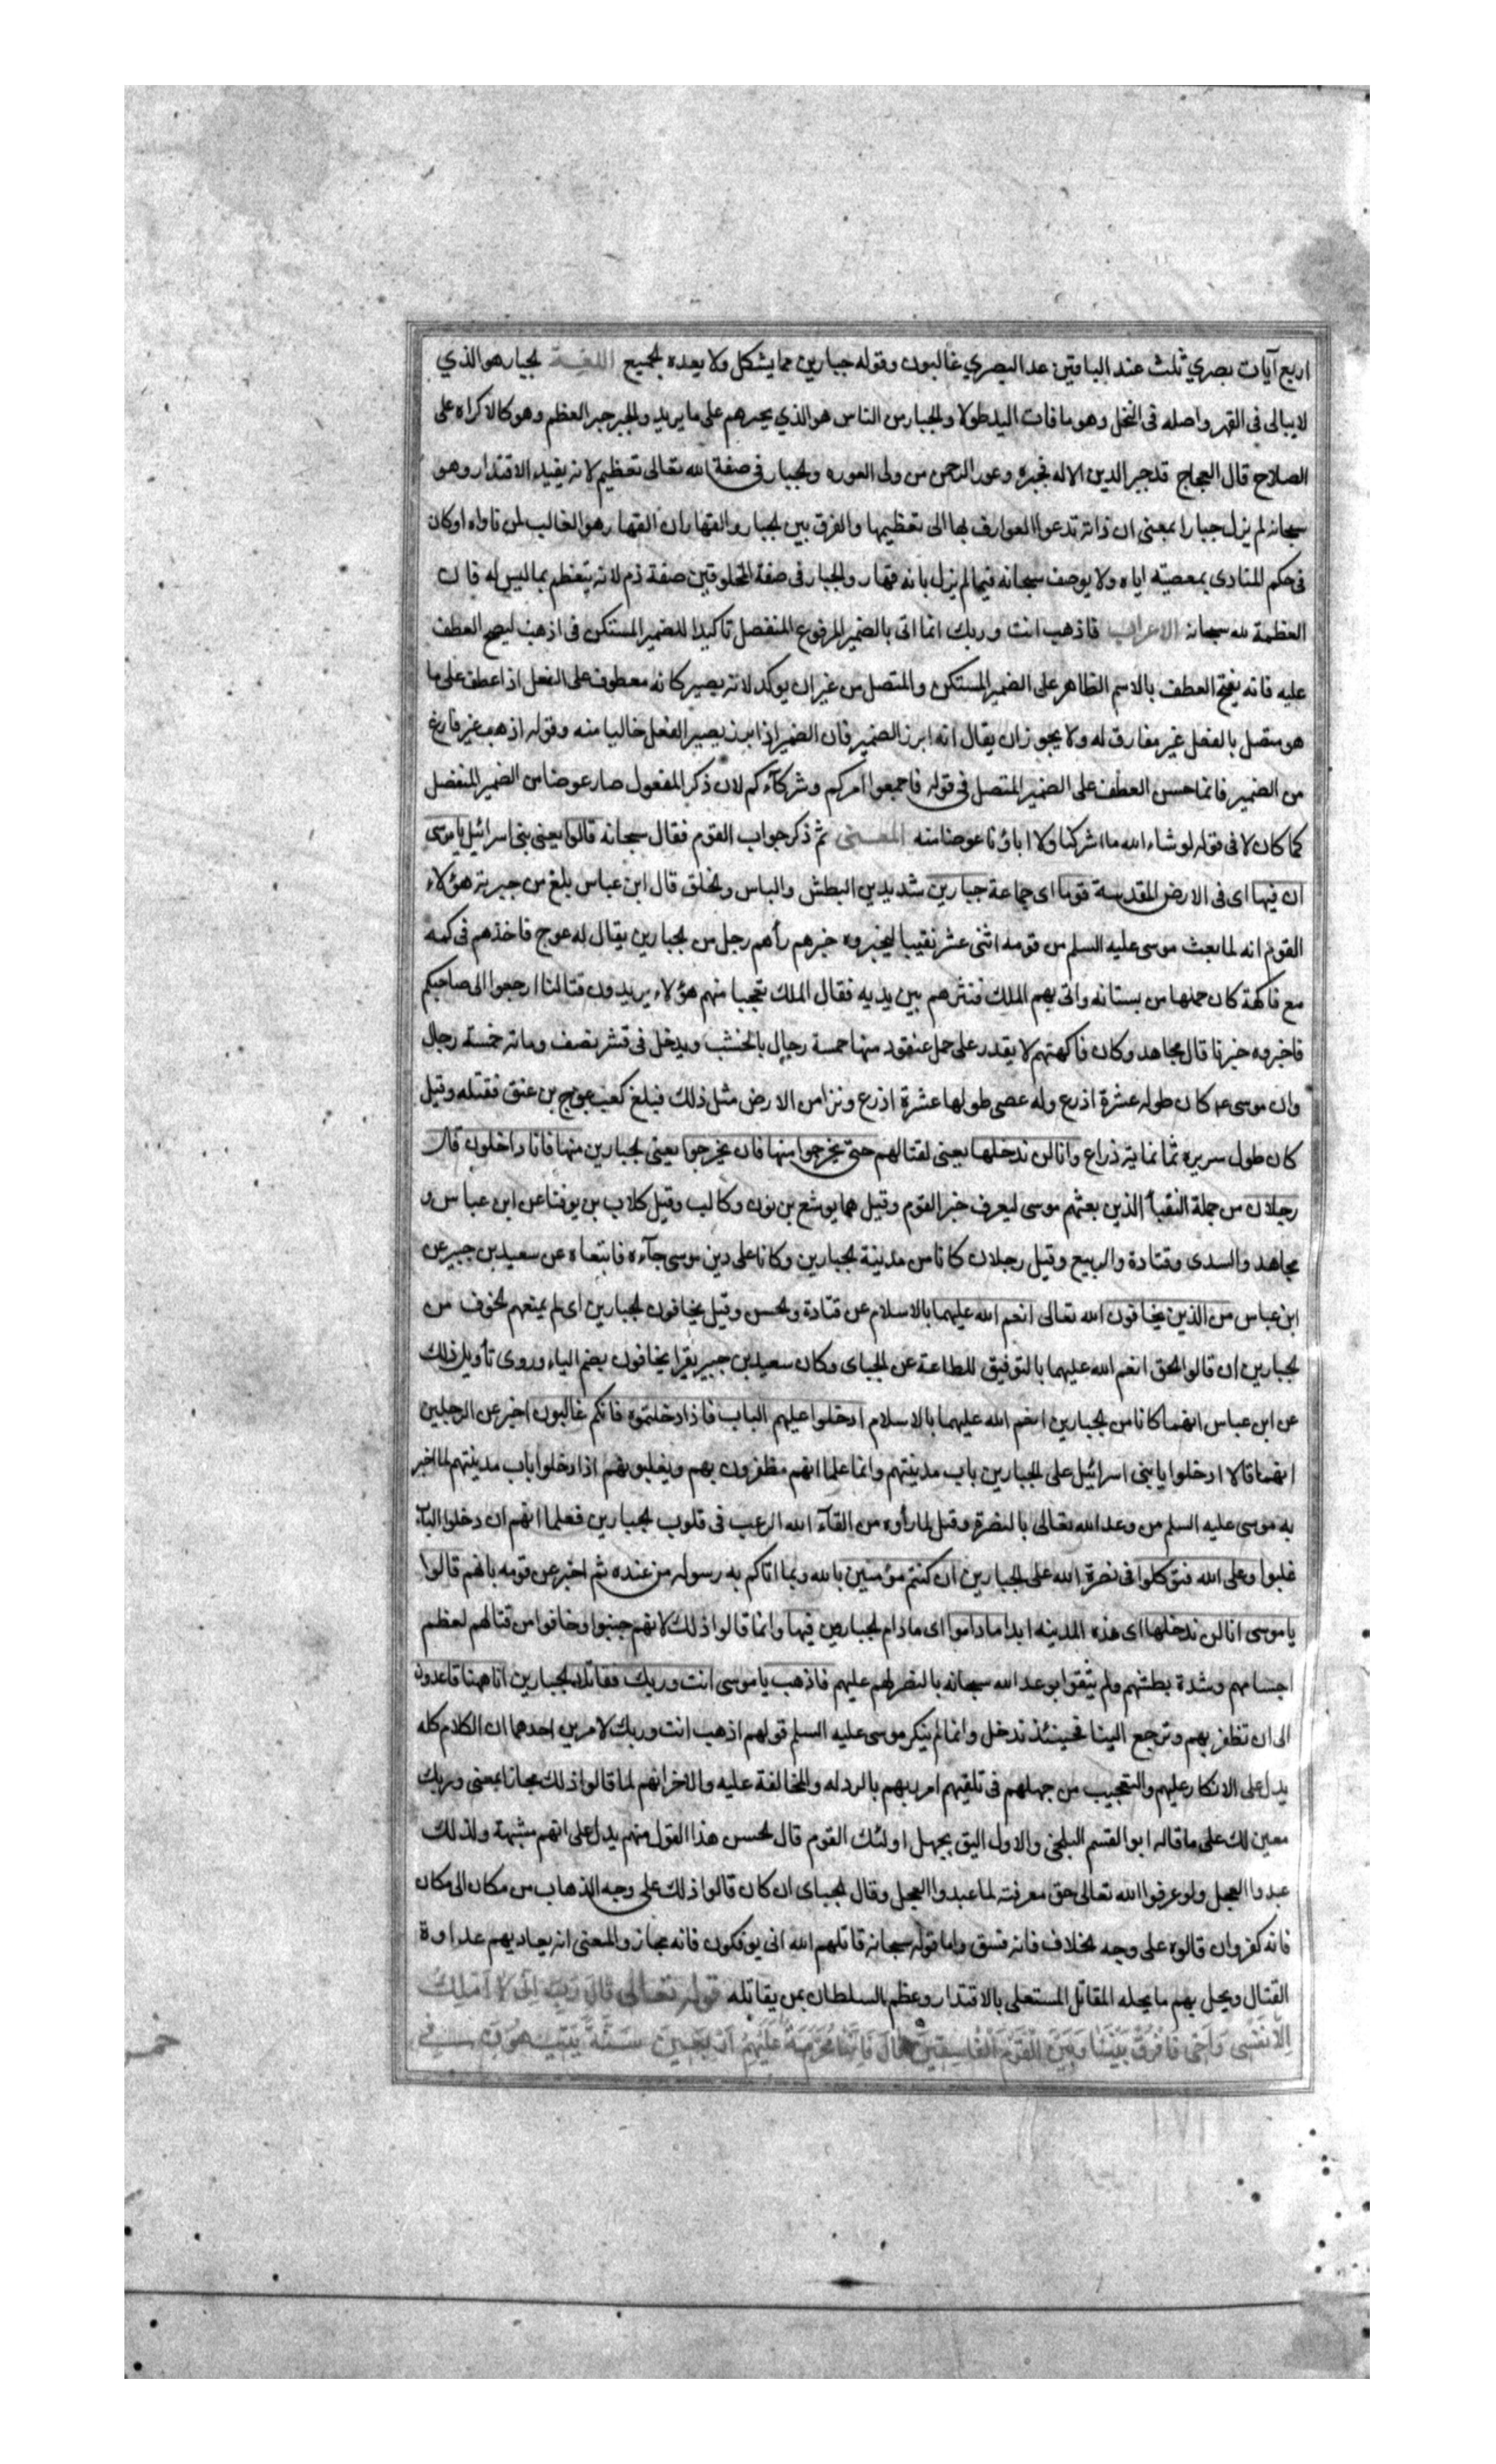 اربع آيات بصري ثلث عند الباقين عد البصري غالبون وقوله جبارين مما يشكل ولا يعده لجميع اللغة لجبار هو الذي
لا يبالى فى القهر واصله فى النخل وهو ما فات اليد طولا والجبار من الناس هو الذي يجبرهم على ما يريد والجبر جبر العظم وهو كالاكراه على
الصلاح قال العجاج قد جبر الدين الاله فجبره وعور الرحمن من ولى العوره ولجبار فى صفة الله تعالى تعظيم لانه يفيد الاقتدار وهو
سبحانه لم يزل جبارا بمعنى ان ذاته تدعوا العوارف بها الى تعظيمها والفرق بين لجبار والقهار ان القهار هو الغالب لمن ناواه او كان
فى حكم المناوى بمعصيته اياه ولا يوصف سبحانه فيما لم يزل بانه قهار ولجبار فى صفة المخلوقين صفة ذم لانه يتعظم بما ليس له فان
العظمة لله سبحانه الاعراب فاذهب انت وربك انما اتى بالضمير المرفوع المنفصل تاكيدا للضمير المستكن فى اذهب ليصح العطف
عليه فانه يقبح العطف بالاسم الظاهر على الضمير المستكن والمتصل من غير ان يوكد لانه يصير كانه معطوف على الفعل اذا عطف على ما
هو متصل بالفعل غير مفارق له ولا يجوز ان يقال انه ابرز الضمير فان الضمير اذا ابرز يصير الفعل خاليا منه وقوله اذهب غير فارغ
من الضمير فانما حسن العطف على الضمير المتصل فى قوله فاجمعوا امركم وشركآءكم لان ذكر المفعول صار عوضا من الضمير المنفصل
كما كان لا فى قوله لو شاء الله ما اشركنا ولا اباؤنا عوضا منه المعنى ثم ذكر جواب القوم فقال سبحانه قالوا يعنى بنى اسرائيل يا موسى
ان فيها اى فى الارض المقدسة قوما اى جماعة جبارين شديدين البطش والباس ولخلق قال ابن عباس بلغ من جبرية هؤلاء
القوم انه لما بعث موسى عليه السلم من قومه اثنى عشر نقيبا ليخبروه خبرهم رأهم رجل من لجبارين يقال له عوج فاخذهم فى كمه
مع فاكهة كان حملها من بستانه واتى بهم الملك فنثرهم بين يديه فقال الملك تعجبا منهم هؤلاء يريدون قتالنا ارجعوا الى صاحبكم
فاخبروه خبرنا قال مجاهد وكان فاكهتهم لا يقدر على حمل عنقود منها خمسة رجال بالخشب ويدخل فى قشر نصف رمانة خمسة رجال
وان موسى ع كان طوله عشرة اذرع وله عصى طولها عشرة اذرع ونزا من الارض مثل ذلك فبلغ كعب عوج بن عنق فقتله وقيل
كان طول سريره ثمانماية ذراع وانا لن ندخلها يعنى لقتالهم حتى يخرجوا منها فان يخرجوا يعنى لجبارين منها فانا داخلون قال
رجلان من جملة النقبآ الذين بعثهم موسى ليعرف خبر القوم وقيل هما يوشع بن نون وكالب وقيل كلاب بن يوفنا عن ابن عباس و
مجاهد والسدى وقتادة والربيع وقيل رجلان كانا من مدينة لجبارين وكانا على دين موسى جآءه فاتبعاه عن سعيد بن جبير عن
ابن عباس من الذين يخافون الله تعالى انعم الله عليهما بالاسلام عن قتادة ولحسن وقيل يخافون لجبارين اى لم يمنعهم لخوف من
لجبارين ان قالوا لحق انعم الله عليهما بالتوفيق للطاعة عن لجباى وكان سعيد بن جبير يقرا يخافون بضم الياء وروى تأويل ذلك
عن ابن عباس انهما كانا من لجبارين انعم الله عليهما بالاسلام ادخلوا عليهم الباب فاذا دخلتموه فانكم غالبون اخبر عن الرجلين
انهما قالا ادخلوا يا بنى اسرائيل على لجبارين باب مدينتهم وانما علما انهم مظفرون بهم ويغلبونهم اذا دخلوا باب مدينتهم لما اخبر
به موسى عليه السلم من وعد الله تعالى بالنصرة وقيل لما رأوه من القآء الله الرعب فى قلوب لجبارين فعلما انهم ان دخلوا الباب
غلبوا وعلى الله فتوكلوا فى نصرة الله على لجبارين ان كنتم مؤمنين بالله وبما اتاكم به رسوله من عنده ثم اخبر عن قومه بانهم قالوا
يا موسى انا لن ندخلها اى هذه المدينه ابدا ما داموا اى ما دام لجبارين فيها وانما قالوا ذلك لانهم جبنوا وخافوا من قتالهم لعظم
اجسامهم وشدة بطشهم ولم يثقوا بوعد الله سبحانه بالنصر لهم عليهم فاذهب يا موسى انت وربك فقاتلا لجبارين انا ههنا قاعدون
الى ان تظفر بهم وترجع الينا فحينئذ ندخل وانما لم ينكر موسى عليه السلم قولهم اذهب انت وربك لامرين احدهما ان الكلام كله
يدل على الانكار عليهم والتعجيب من جهلهم فى تلقيهم امر ربهم بالرد له والمخالفة عليه والاخر انهم لما قالوا ذلك مجازا بمعنى وربك
معين لك على ما قاله ابو القسم البلخى والاول اليق بجهل اولئك القوم قال لحسن هذا القول منهم يدل على انهم مشبهة ولذلك
عبدوا العجل ولو عرفوا الله تعالى حق معرفته لما عبدوا العجل وقال لجباى ان كان قالوا ذلك على وجه الذهاب من مكان الى مكان
فانه كفر وان قالوه على وجه لخلاف فانه فسق واما قوله سبحانه قاتلهم الله انى يوفكون فانه مجاز والمعنى انه يعاديهم عداوة
القتال ويحل بهم ما يحله المقاتل المستعلى بالاقتدار وعظم السلطان بمن يقاتله قوله تعالى قال رب انى لا املك
الا نفسى واخى فافرق بيننا وبين القوم الفاسقين قال فانها محرمة عليهم اربعين سنة يتيهون فى